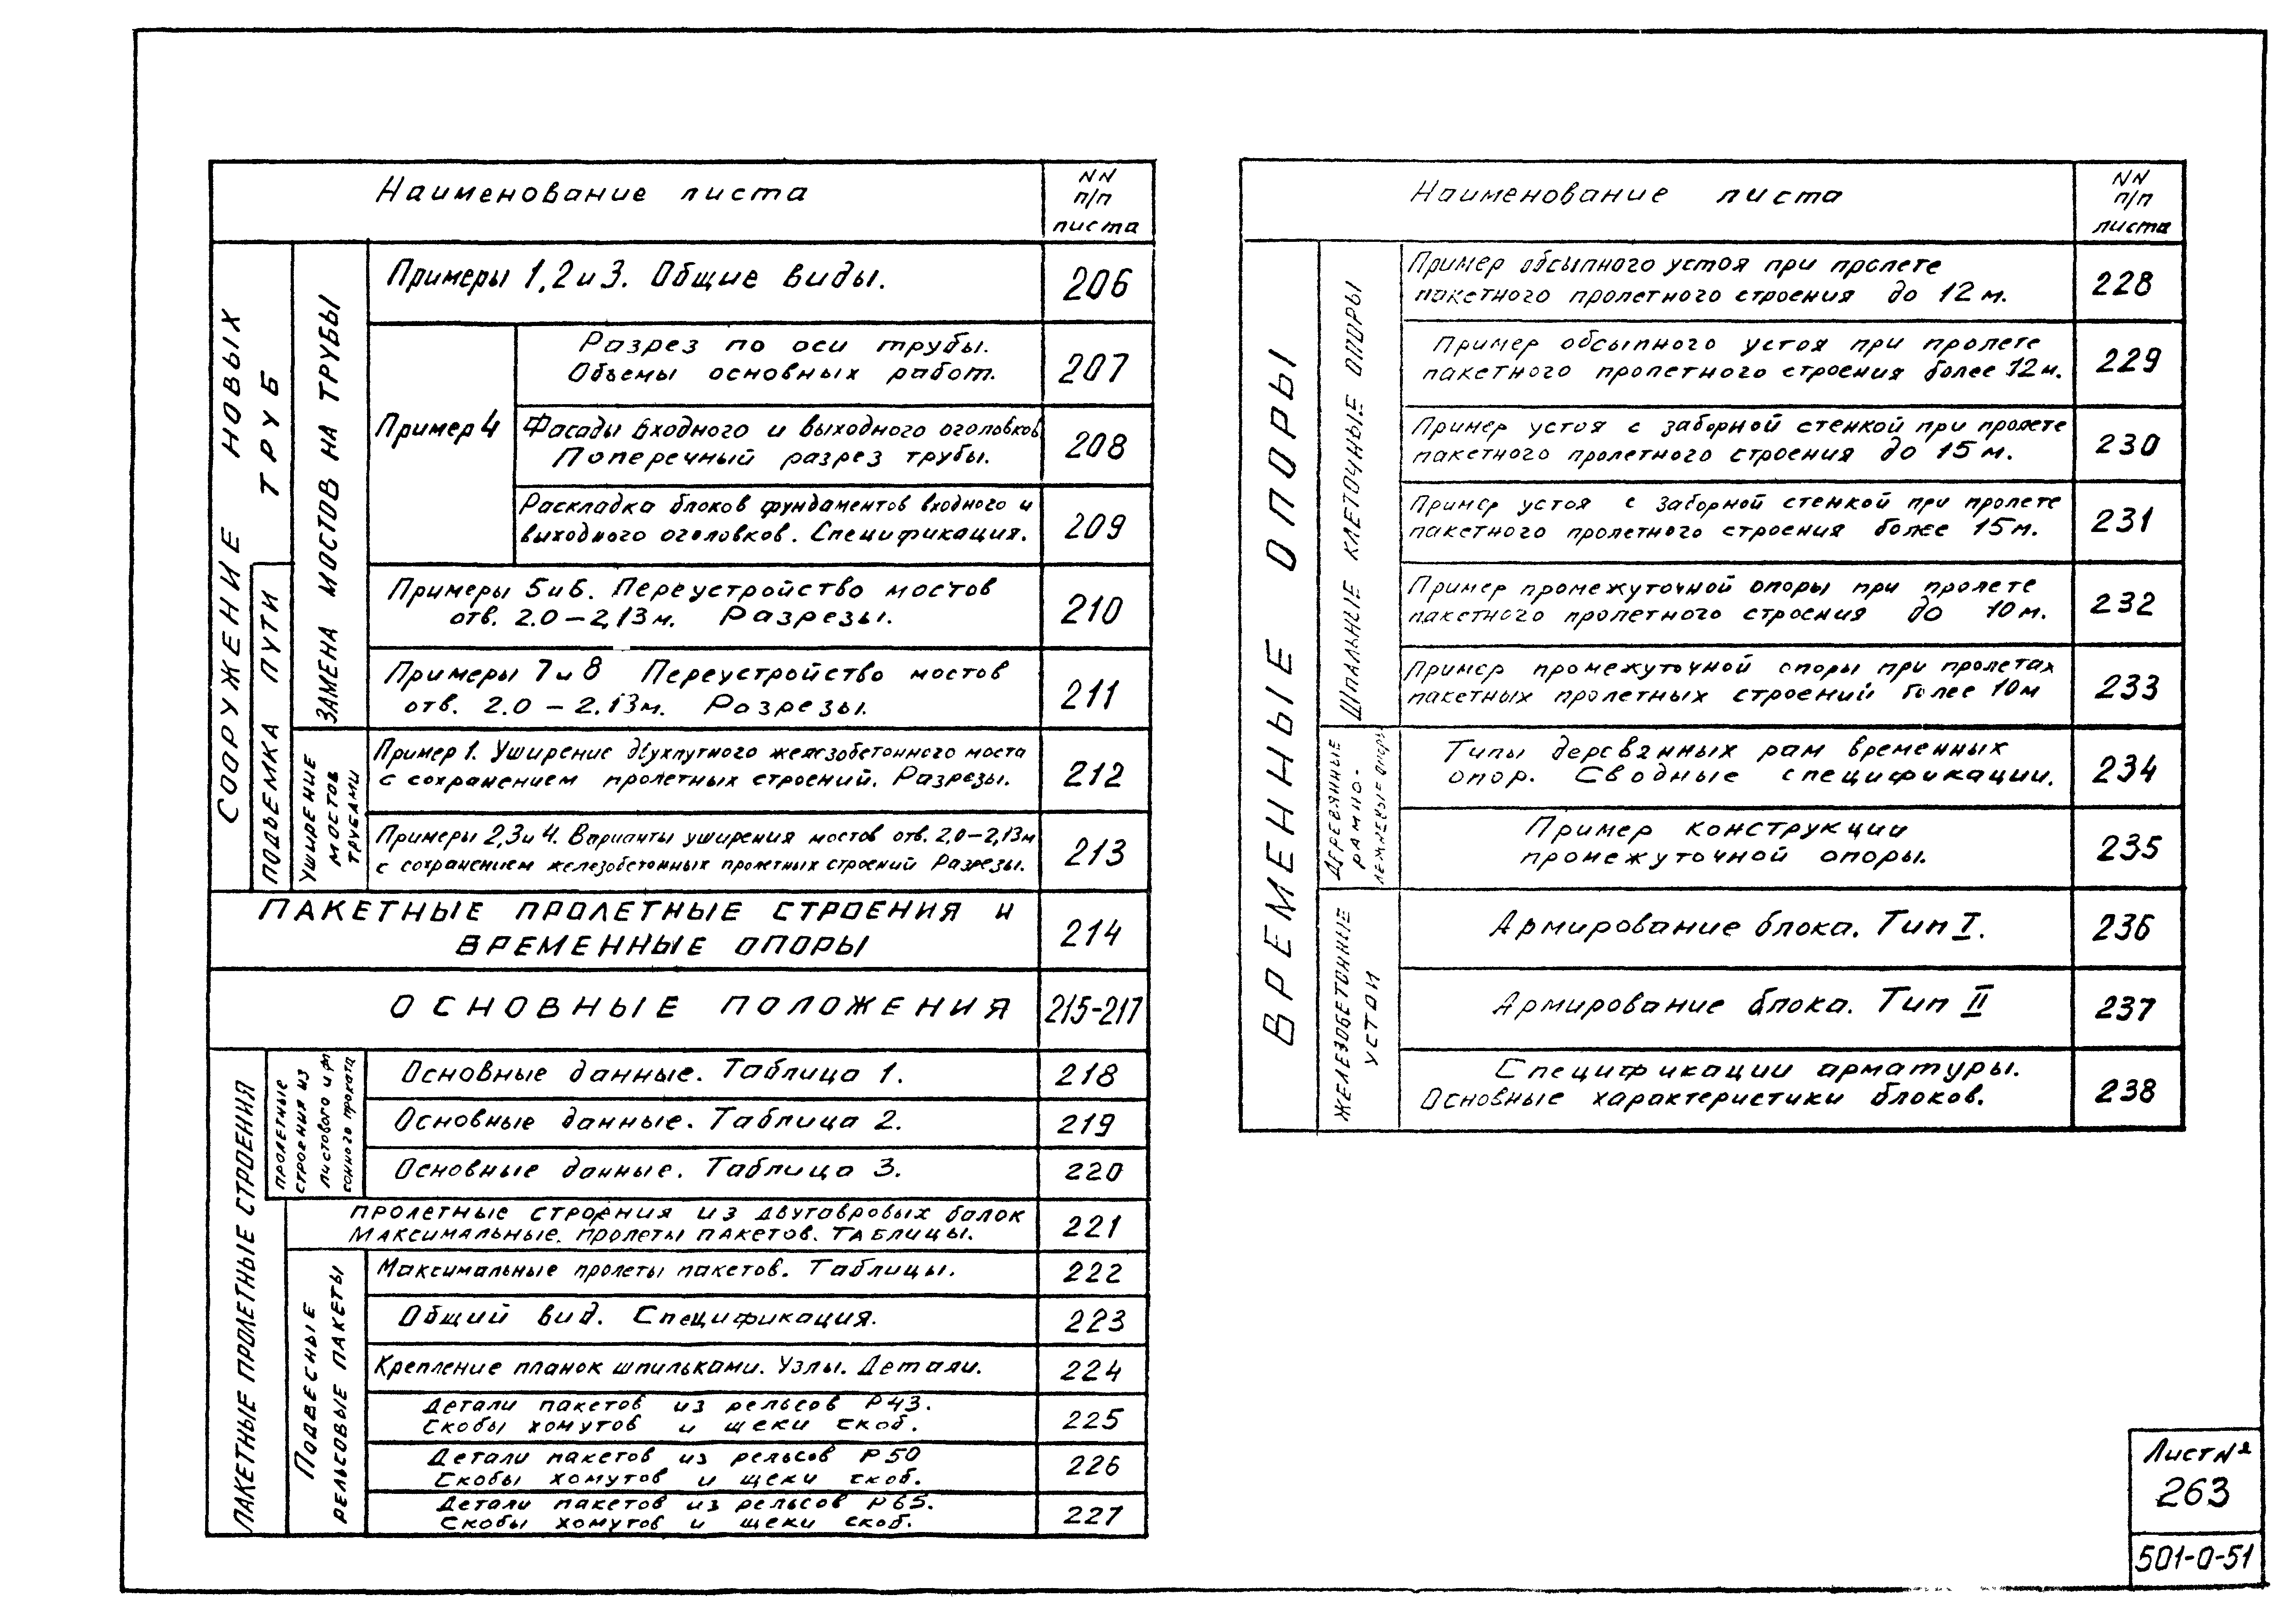 Наименование листа
NN
п/п
листа
СООРУЖЕНИЕ НОВЫХ
ТРУБ
ПОДЪЕМКА ПУТИ
ЗАМЕНА МОСТОВ НА ТРУБЫ
Примеры 1,2 и 3. Общие виды.
206
Пример 4
Разрез по оси трубы.
Объемы основных работ.
207
Фасады входного и выходного оголовков
Поперечный разрез трубы.
208
Раскладка блоков фундаментов входного и
выходного оголовков. Спецификация.
209
Примеры 5 и 6. Переустройство мостов
отв. 2.0 – 2,13 м. Разрезы.
210
Примеры 7 и 8 Переустройство мостов
отв. 2.0 – 2.13 м. Разрезы.
211
УШИРЕНИЕ
МОСТОВ
ТРУБАМИ
Пример 1. Уширение двухпутного железобетонного моста
с сохранением пролетных строений. Разрезы.
212
Примеры 2,3 и 4. Варианты уширения мостов отв. 2,0–2,13 м
с сохранением железобетонных пролетных строений Разрезы.
213
ПАКЕТНЫЕ ПРОЛЕТНЫЕ СТРОЕНИЯ и
ВРЕМЕННЫЕ ОПОРЫ
214
ОСНОВНЫЕ ПОЛОЖЕНИЯ
215-217
ПАКЕТНЫЕ ПРОЛЕТНЫЕ СТРОЕНИЯ
ПРОЛЕТНЫЕ
СТРОЕНИЯ ИЗ
ЛИСТОВОГО И ФА
СОННОГО ПРОКАТА
Основные данные. Таблица 1.
218
Основные данные. Таблица 2.
219
Основные данные. Таблица 3.
220
ПРОЛЕТНЫЕ СТРОЕНИЯ ИЗ ДВУТАВРОВЫХ БАЛОК
МАКСИМАЛЬНЫЕ. ПРОЛЕТЫ ПАКЕТОВ. ТАБЛИЦЫ.
221
ПОДВЕСНЫЕ
РЕЛЬСОВЫЕ ПАКЕТЫ
Максимальные пролеты пакетов. Таблицы.
222
Общий вид. Спецификация.
223
Крепление планок шпильками. Узлы. Детали.
224
Детали пакетов из рельсов Р43.
Скобы хомутов и щеки скоб.
225
Детали пакетов из рельсов Р50
Скобы хомутов и щеки скоб.
226
Детали пакетов из рельсов Р65.
Скобы хомутов и щеки скоб.
227
Наименование листа
NN
п/п
листа
ВРЕМЕННЫЕ ОПОРЫ
ШПАЛЬНЫЕ КЛЕТОЧНЫЕ ОПОРЫ
Пример обсыпного устоя при пролете
пакетного пролетного строения до 12 м.
228
Пример обсыпного устоя при пролете
пакетного пролетного строения более 12 м.
229
Пример устоя с заборной стенкой при пролете
пакетного пролетного строения до 15 м.
230
Пример устоя с заборной стенкой при пролете
пакетного пролетного строения более 15 м.
231
Пример промежуточной опоры при пролете
пакетного пролетного строения до 10 м.
232
Пример промежуточной опоры при пролетах
пакетных пролетных строений более 10 м
233
ДЕРЕВЯННЫЕ
РАМНО-
ЛЕЖНЕВЫЕ ОПОРЫ
Типы деревянных рам временных
опор. Сводные спецификации.
234
Пример конструкции
промежуточной опоры.
235
ЖЕЛЕЗОБЕТОННЫЕ
УСТОИ
Армирование блока. Тип I.
236
Армирование блока. Тип II
237
Спецификации арматуры.
Основные характеристики блоков.
238
Лист №
263
501-0-51